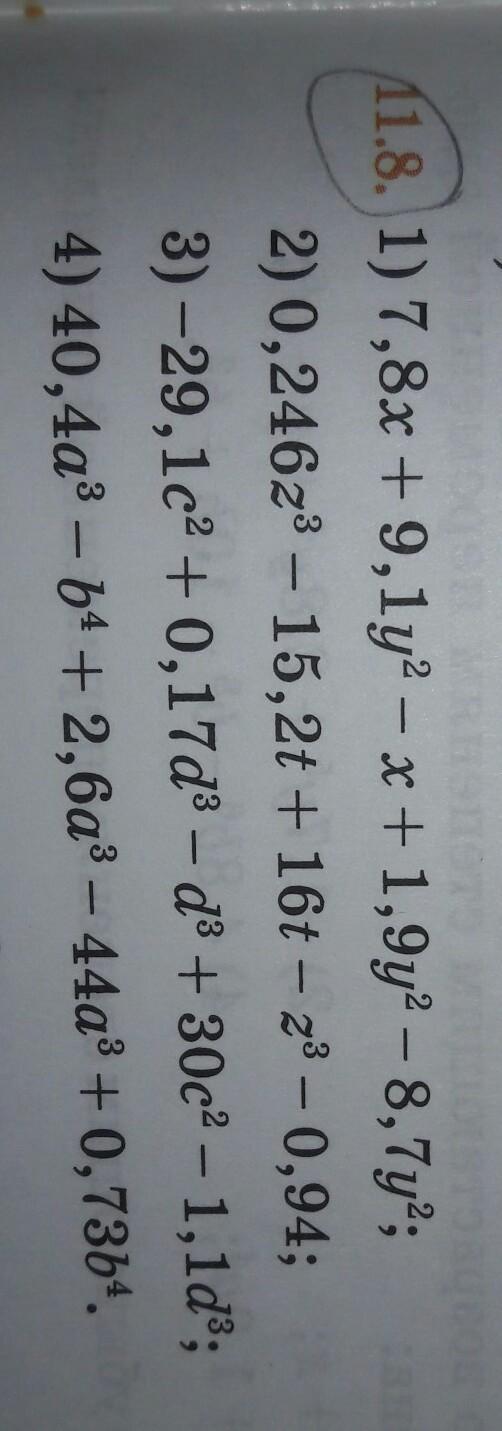 11.8. 1) 7,8x + 9,1y² − x + 1,9y² − 8,7y²;
2) 0,246z³ − 15,2t + 16t − z³ − 0,94;
3) −29,1c² + 0,17d³ − d³ + 30c² − 1,1d³;
4) 40,4a³ − b⁴ + 2,6a³ − 44a³ + 0,73b⁴.